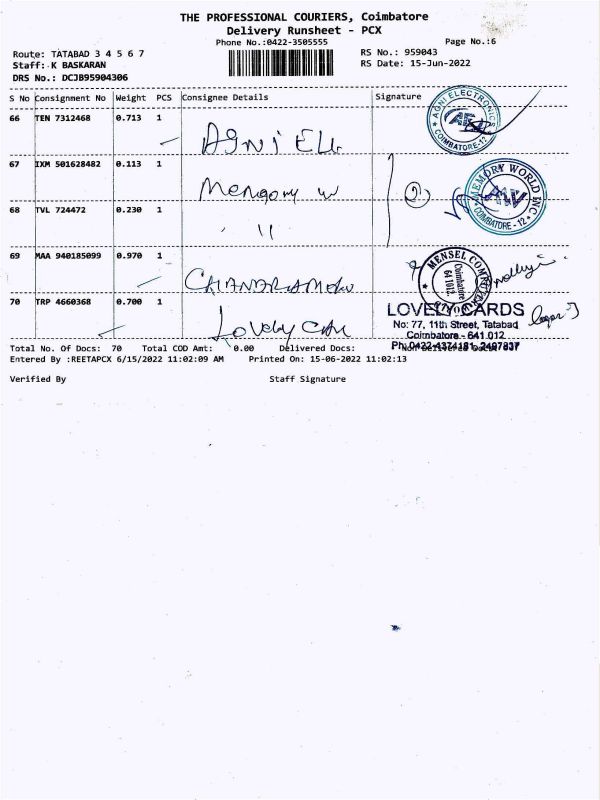 THE PROFESSIONAL COURIERS, Coimbatore
Delivery Runsheet - PCX
Phone No.:0422-3505555
Page No.:6
Route: TATABAD 3 4 5 6 7
RS No.: 959043
Staff: K BASKARAN
RS Date: 15-Jun-2022
DRS No.: DCJB95904306
S No Consignment No Weight PCS Consignee Details Signature
AGNI ELECTRONICS
COIMBATORE-12
66 TEN 7312468 0.713 1
AGNI ELE
67 IXM 501628482 0.113 1
Memory w
MEMORY WORLD INC
COIMBATORE - 12
68 TVL 724472 0.230 1
"
69 MAA 940185099 0.970 1
MENSEL
Coimbatore
641012
70 TRP 4660368 0.700 1
Lovely
LOVELY CARDS
No: 77, 11th Street, Tatabad
Coimbatore - 641 012
Ph:0422-4374181, 2497837
Total No. Of Docs: 70 Total COD Amt: 0.00 Delivered Docs:
Entered By :REETAPCX 6/15/2022 11:02:09 AM Printed On: 15-06-2022 11:02:13
Verified By Staff Signature